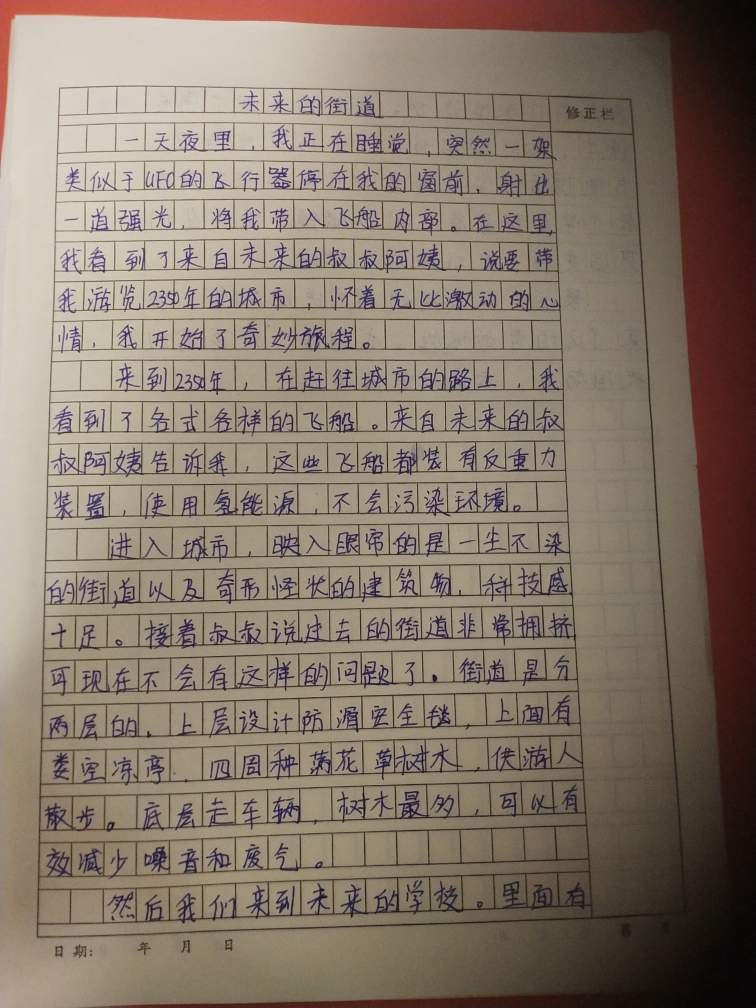 未来的街道
修正栏
一天夜里，我正在睡觉，突然一架
类似于UFO的飞行器停在我的窗前，射出
一道强光，将我带入飞船内部。在这里，
我看到了来自未来的叔叔阿姨，说要带
我游览2350年的城市，怀着无比激动的心
情，我开始了奇妙旅程。
来到2350年，在赶往城市的路上，我
看到了各式各样的飞船。来自未来的叔
叔阿姨告诉我，这些飞船都装有反重力
装置，使用氢能源，不会污染环境。
进入城市，映入眼帘的是一尘不染
的街道以及奇形怪状的建筑物，科技感
十足。接着叔叔说过去的街道非常拥挤
可现在不会有这样的问题了。街道是分
两层的，上层设计防滑安全毯，上面有
娄空凉亭，四周种满花草树木，供游人
散步。底层走车辆，树木最多，可以有
效减少噪音和废气。
然后我们来到未来的学校。里面有
日期: 年 月 日